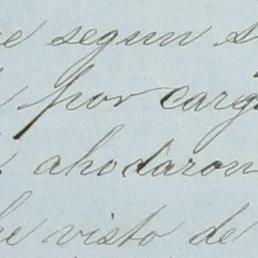 segun
por carg
ahodaron
he visto de